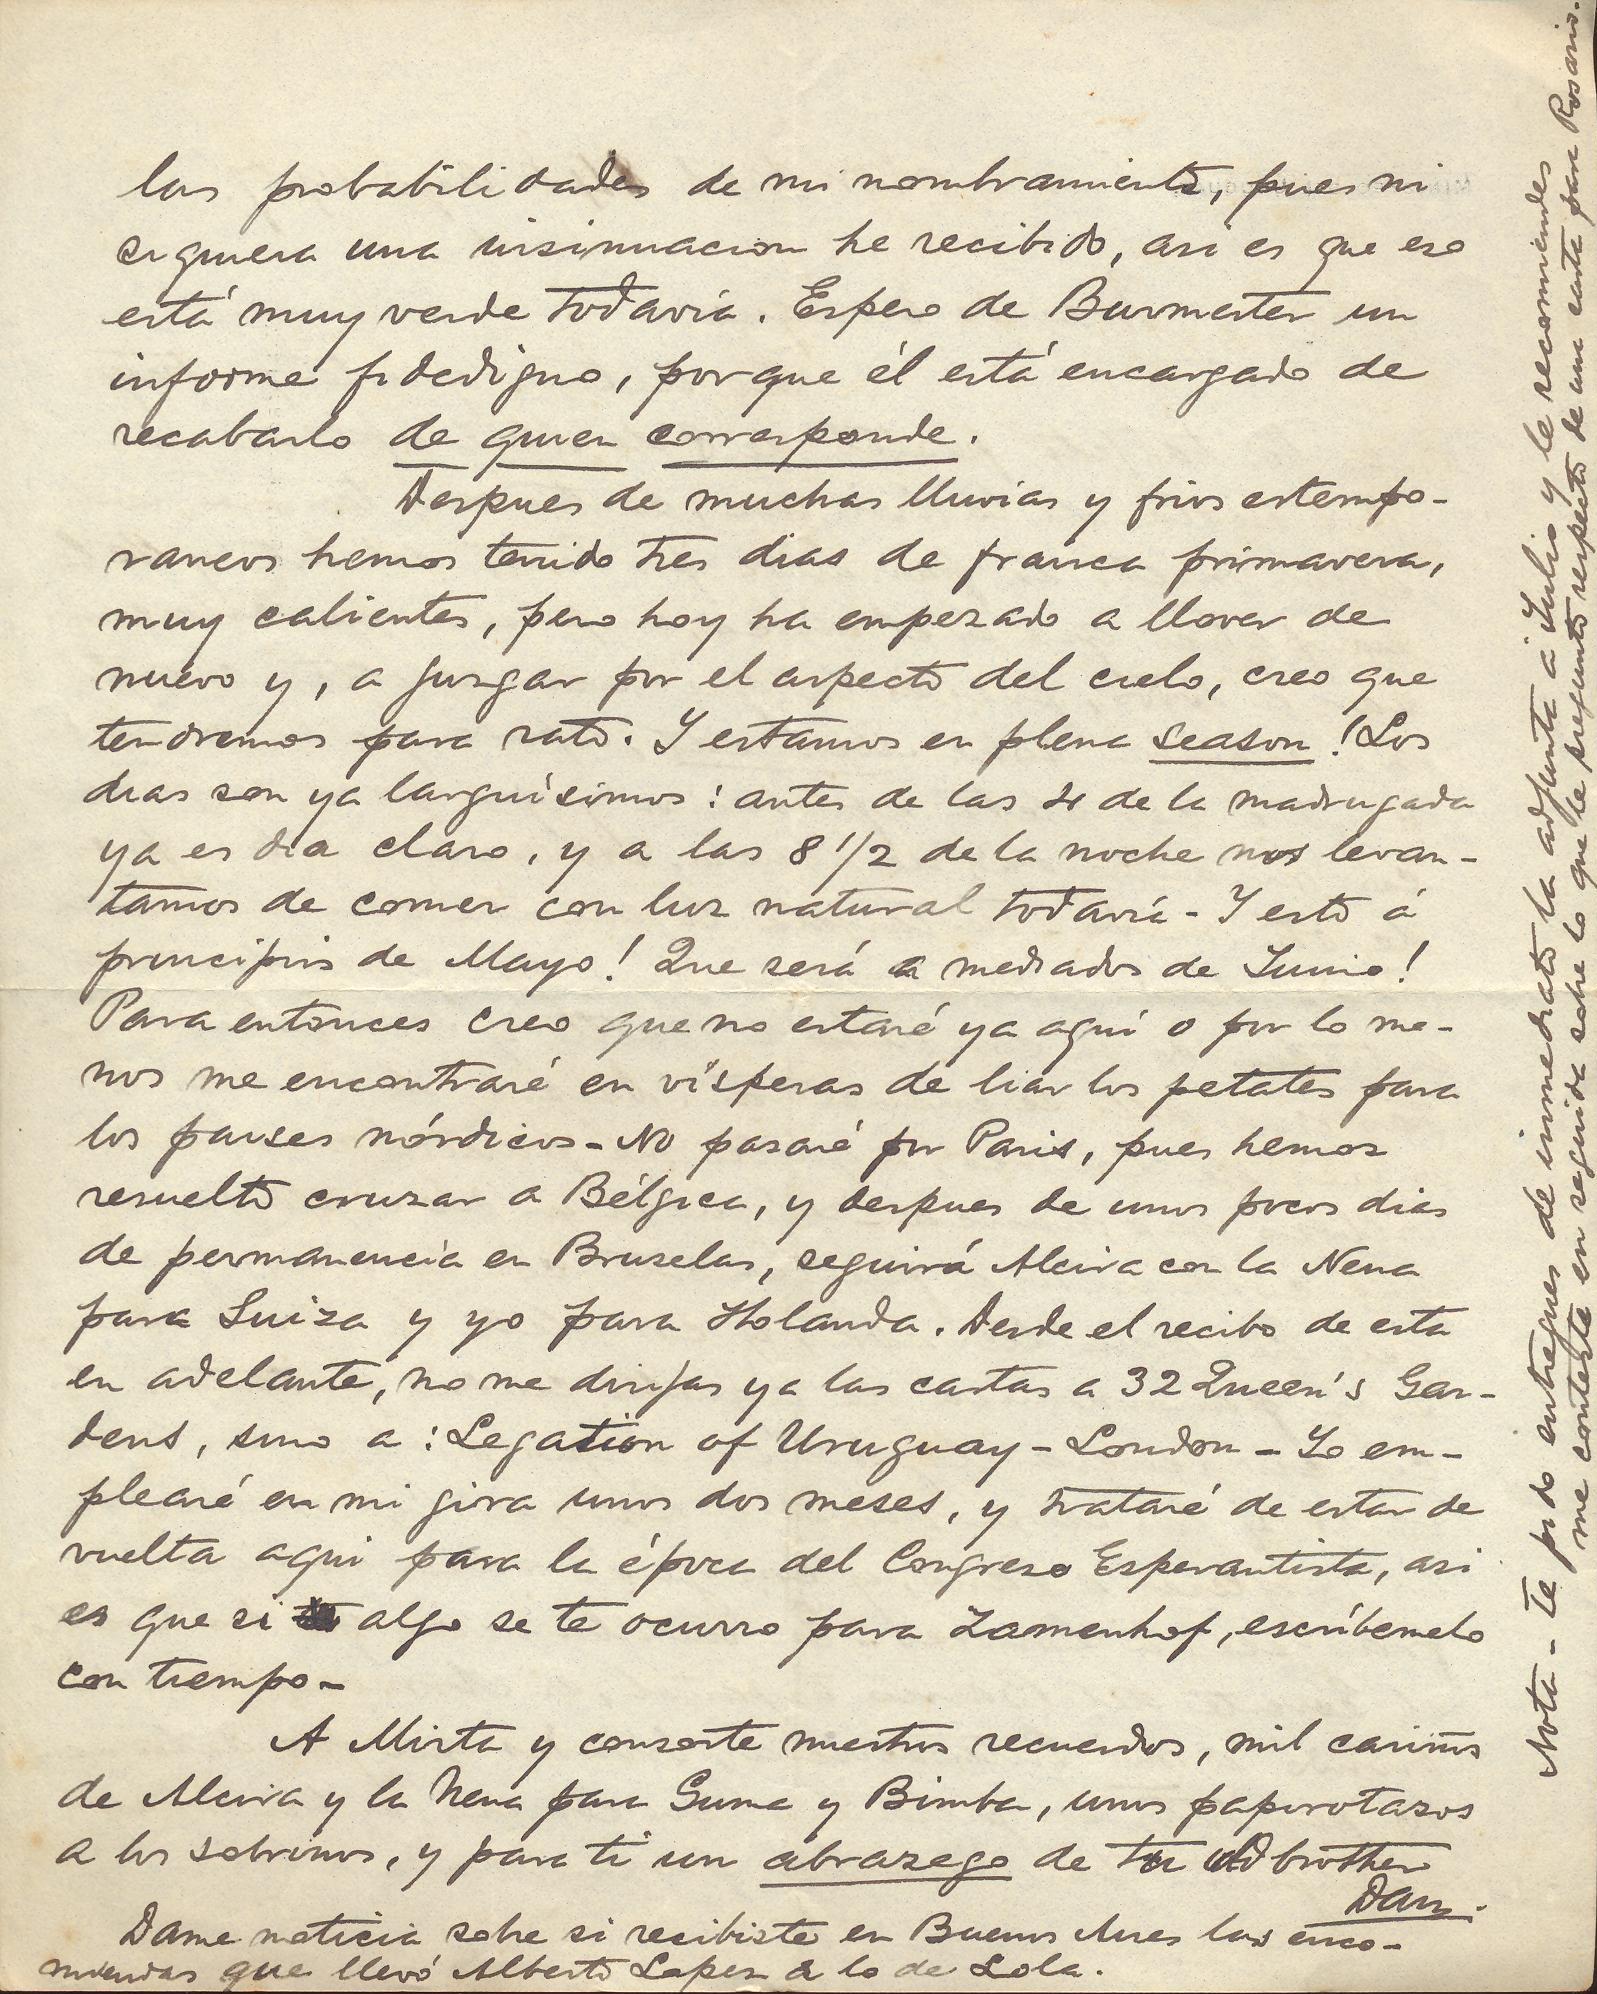 las probabilidades de mi nombramiento, pues ni
siquiera una insinuacion he recibido, asi es que eso
está muy verde todavia. Espero de Burmester un
informe fidedigno, porque él está encargado de
recabarlo de quien corresponde.
Despues de muchas lluvias y frios estempo-
raneos hemos tenido tres dias de franca primavera,
muy calientes, pero hoy ha empezado a llover de
nuevo y, a juzgar por el aspecto del cielo, creo que
tendremos para rato. Y estamos en plena season! Los
dias son ya larguísimos: antes de las 4 de la madrugada
ya es dia claro, y a las 8 1/2 de la noche nos levan-
tamos de comer con luz natural todavia - Y esto á
principios de Mayo! Que será a mediados de Junio!
Para entonces creo que no estaré ya aquí o por lo me-
nos me encontraré en vísperas de liar los petates para
los paises nórdicos - No pasaré por Paris, pues hemos
resuelto cruzar a Bélgica, y despues de unos pocos dias
de permanencia en Bruselas, seguirá Alcira con la Nena
para Suiza y yo para Holanda. Desde el recibo de esta
en adelante, no me dirijas ya las cartas a 32 Queen's Gar-
dens, sino a: Legation of Uruguay - London - Yo em-
plearé en mi gira unos dos meses, y trataré de estar de
vuelta aqui para la época del Congreso Esperantista, asi
es que si algo se te ocurre para Zamenhof, escríbemelo
con tiempo -
A Mirta y consorte nuestros recuerdos, mil cariños
de Alcira y la Nena para Guma y Bimba, unos papirotazos
a los sobrinos, y para ti un abrazego de tu old brother
Dan.
Dame noticia sobre si recibiste en Buenos Aires las enco-
miendas que llevó Alberto Lopez a lo de Lola.
Nota - Te pido entregues de inmediato la adjunta a Julio y le recomiendes
me conteste en seguida sobre lo que le pregunto respecto de una carta para Rosario.